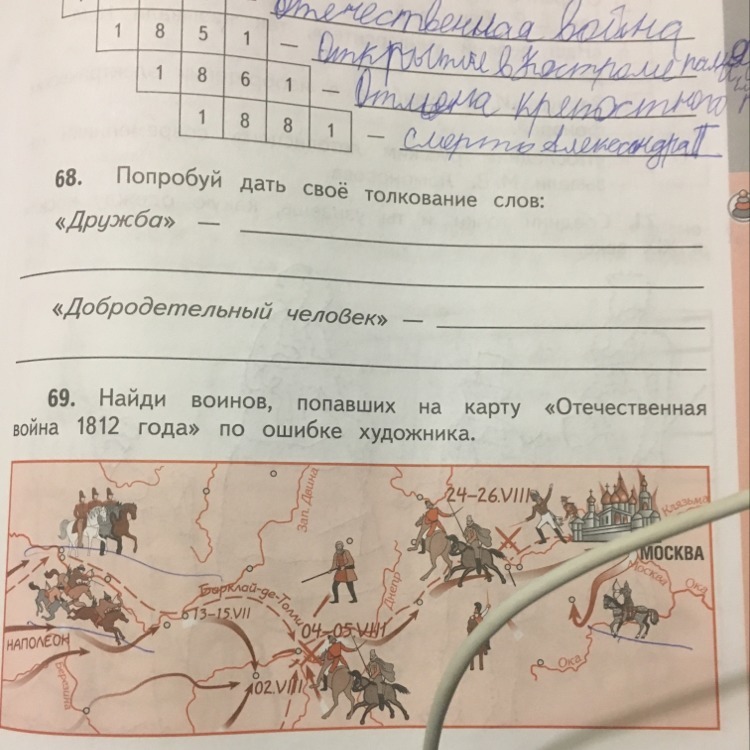 Отечественная война
1 8 5 1 — Открытие в Костроме
1 8 6 1 — Отмена крепостного
1 8 8 1 — смерть Александра II
68. Попробуй дать своё толкование слов:
«Дружба» —
«Добродетельный человек» —
69. Найди воинов, попавших на карту «Отечественная
война 1812 года» по ошибке художника.
Зап. Двина
24–26.VIII
Клязьма
МОСКВА
Москва
Ока
Барклай-де-Толли
Днепр
13–15.VII
04–05.VIII
НАПОЛЕОН
Березина
02.VIII
Ока